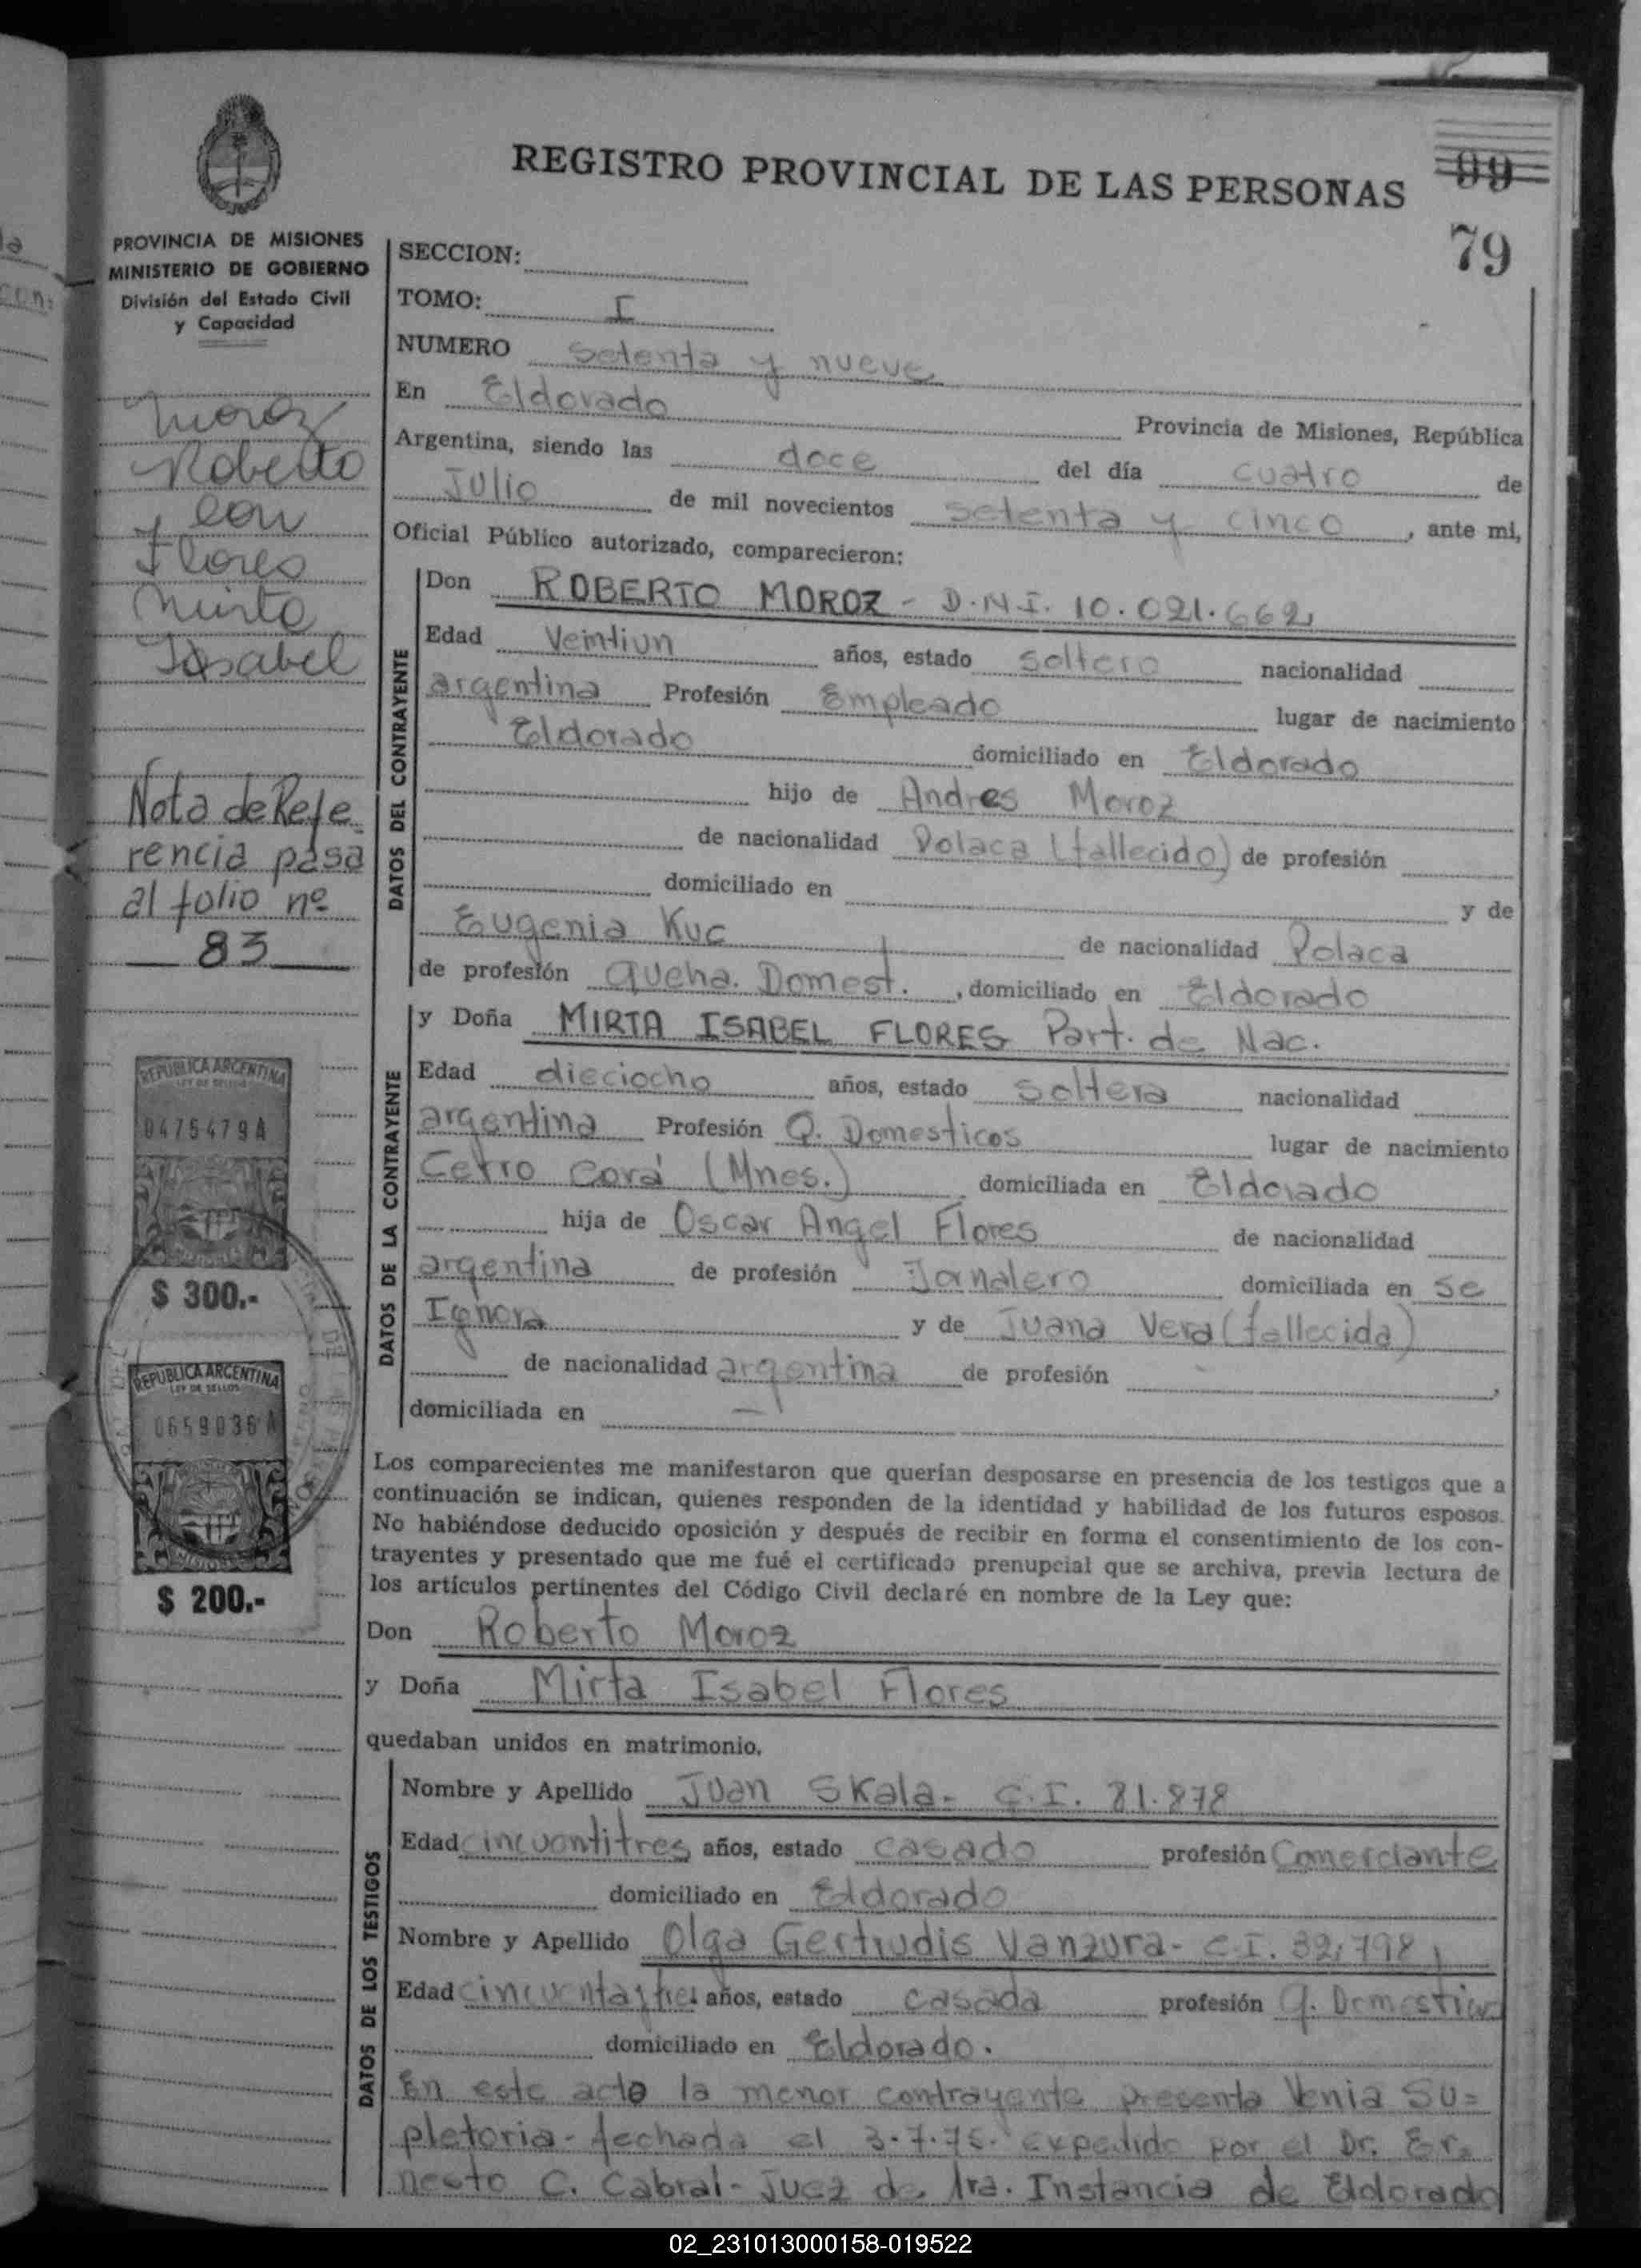 REGISTRO PROVINCIAL DE LAS PERSONAS
99
79
PROVINCIA DE MISIONES
MINISTERIO DE GOBIERNO
División del Estado Civil
y Capacidad
Moroz
Roberto
con
Flores
Mirta
Isabel
Nota de Refe
rencia pasa
al folio nº
83
REPUBLICA ARGENTINA
LEY DE SELLOS
0475479A
$ 300.-
REPUBLICA ARGENTINA
LEY DE SELLOS
0659036 A
MISIONES
$ 200.-
SECCION:
TOMO: I
NUMERO setenta y nueve
En Eldorado Provincia de Misiones, República
Argentina, siendo las doce del día cuatro de
Julio de mil novecientos setenta y cinco, ante mi,
Oficial Público autorizado, comparecieron:
DATOS DEL CONTRAYENTE
Don ROBERTO MOROZ - D.N.I. 10.021.662
Edad Veintiun años, estado soltero nacionalidad
argentina Profesión Empleado lugar de nacimiento
Eldorado domiciliado en Eldorado
hijo de Andres Moroz
de nacionalidad Polaca (fallecido) de profesión
domiciliado en y de
Eugenia Kuc de nacionalidad Polaca
de profesión queha. Domest. , domiciliado en Eldorado
DATOS DE LA CONTRAYENTE
y Doña MIRTA ISABEL FLORES Part. de Nac.
Edad dieciocho años, estado soltera nacionalidad
argentina Profesión Q. Domesticos lugar de nacimiento
Cerro Corá (Mnes.) domiciliada en Eldorado
hija de Oscar Angel Flores de nacionalidad
argentina de profesión Jornalero domiciliada en se
Ignora y de Juana Vera (fallecida)
de nacionalidad argentina de profesión ,
domiciliada en —
Los comparecientes me manifestaron que querían desposarse en presencia de los testigos que a
continuación se indican, quienes responden de la identidad y habilidad de los futuros esposos.
No habiéndose deducido oposición y después de recibir en forma el consentimiento de los con-
trayentes y presentado que me fué el certificado prenupcial que se archiva, previa lectura de
los artículos pertinentes del Código Civil declaré en nombre de la Ley que:
Don Roberto Moroz
y Doña Mirta Isabel Flores
quedaban unidos en matrimonio.
DATOS DE LOS TESTIGOS
Nombre y Apellido Juan Skala- C.I. 81.878
Edad cincuentitres años, estado casado profesión Comerciante
domiciliado en Eldorado
Nombre y Apellido Olga Gertrudis Vanzura- C.I. 32.798
Edad años, estado casada profesión q. Domesticos
domiciliado en Eldorado.
En este acto la menor contrayente presenta Venia Su=
pletoria - fechada el 3-7-75. expedido por el Dr. Er=
nesto C. Cabral - Juez de 1ra. Instancia de Eldorado
02_231013000158-019522